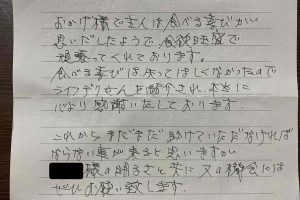 おかげ様で主人は食べる喜びがい
思いだしたようで食欲旺盛で
頑張ってくれております。
食べる喜びは失ってほしくなかったので
ライフデリさんを紹介され、本当に
心より感謝いたしております。
これからまだまだ助けていただだなければ
ならない事が来ると思いますが
様の明るさと共に又の機会には
ぜひお願い致します。